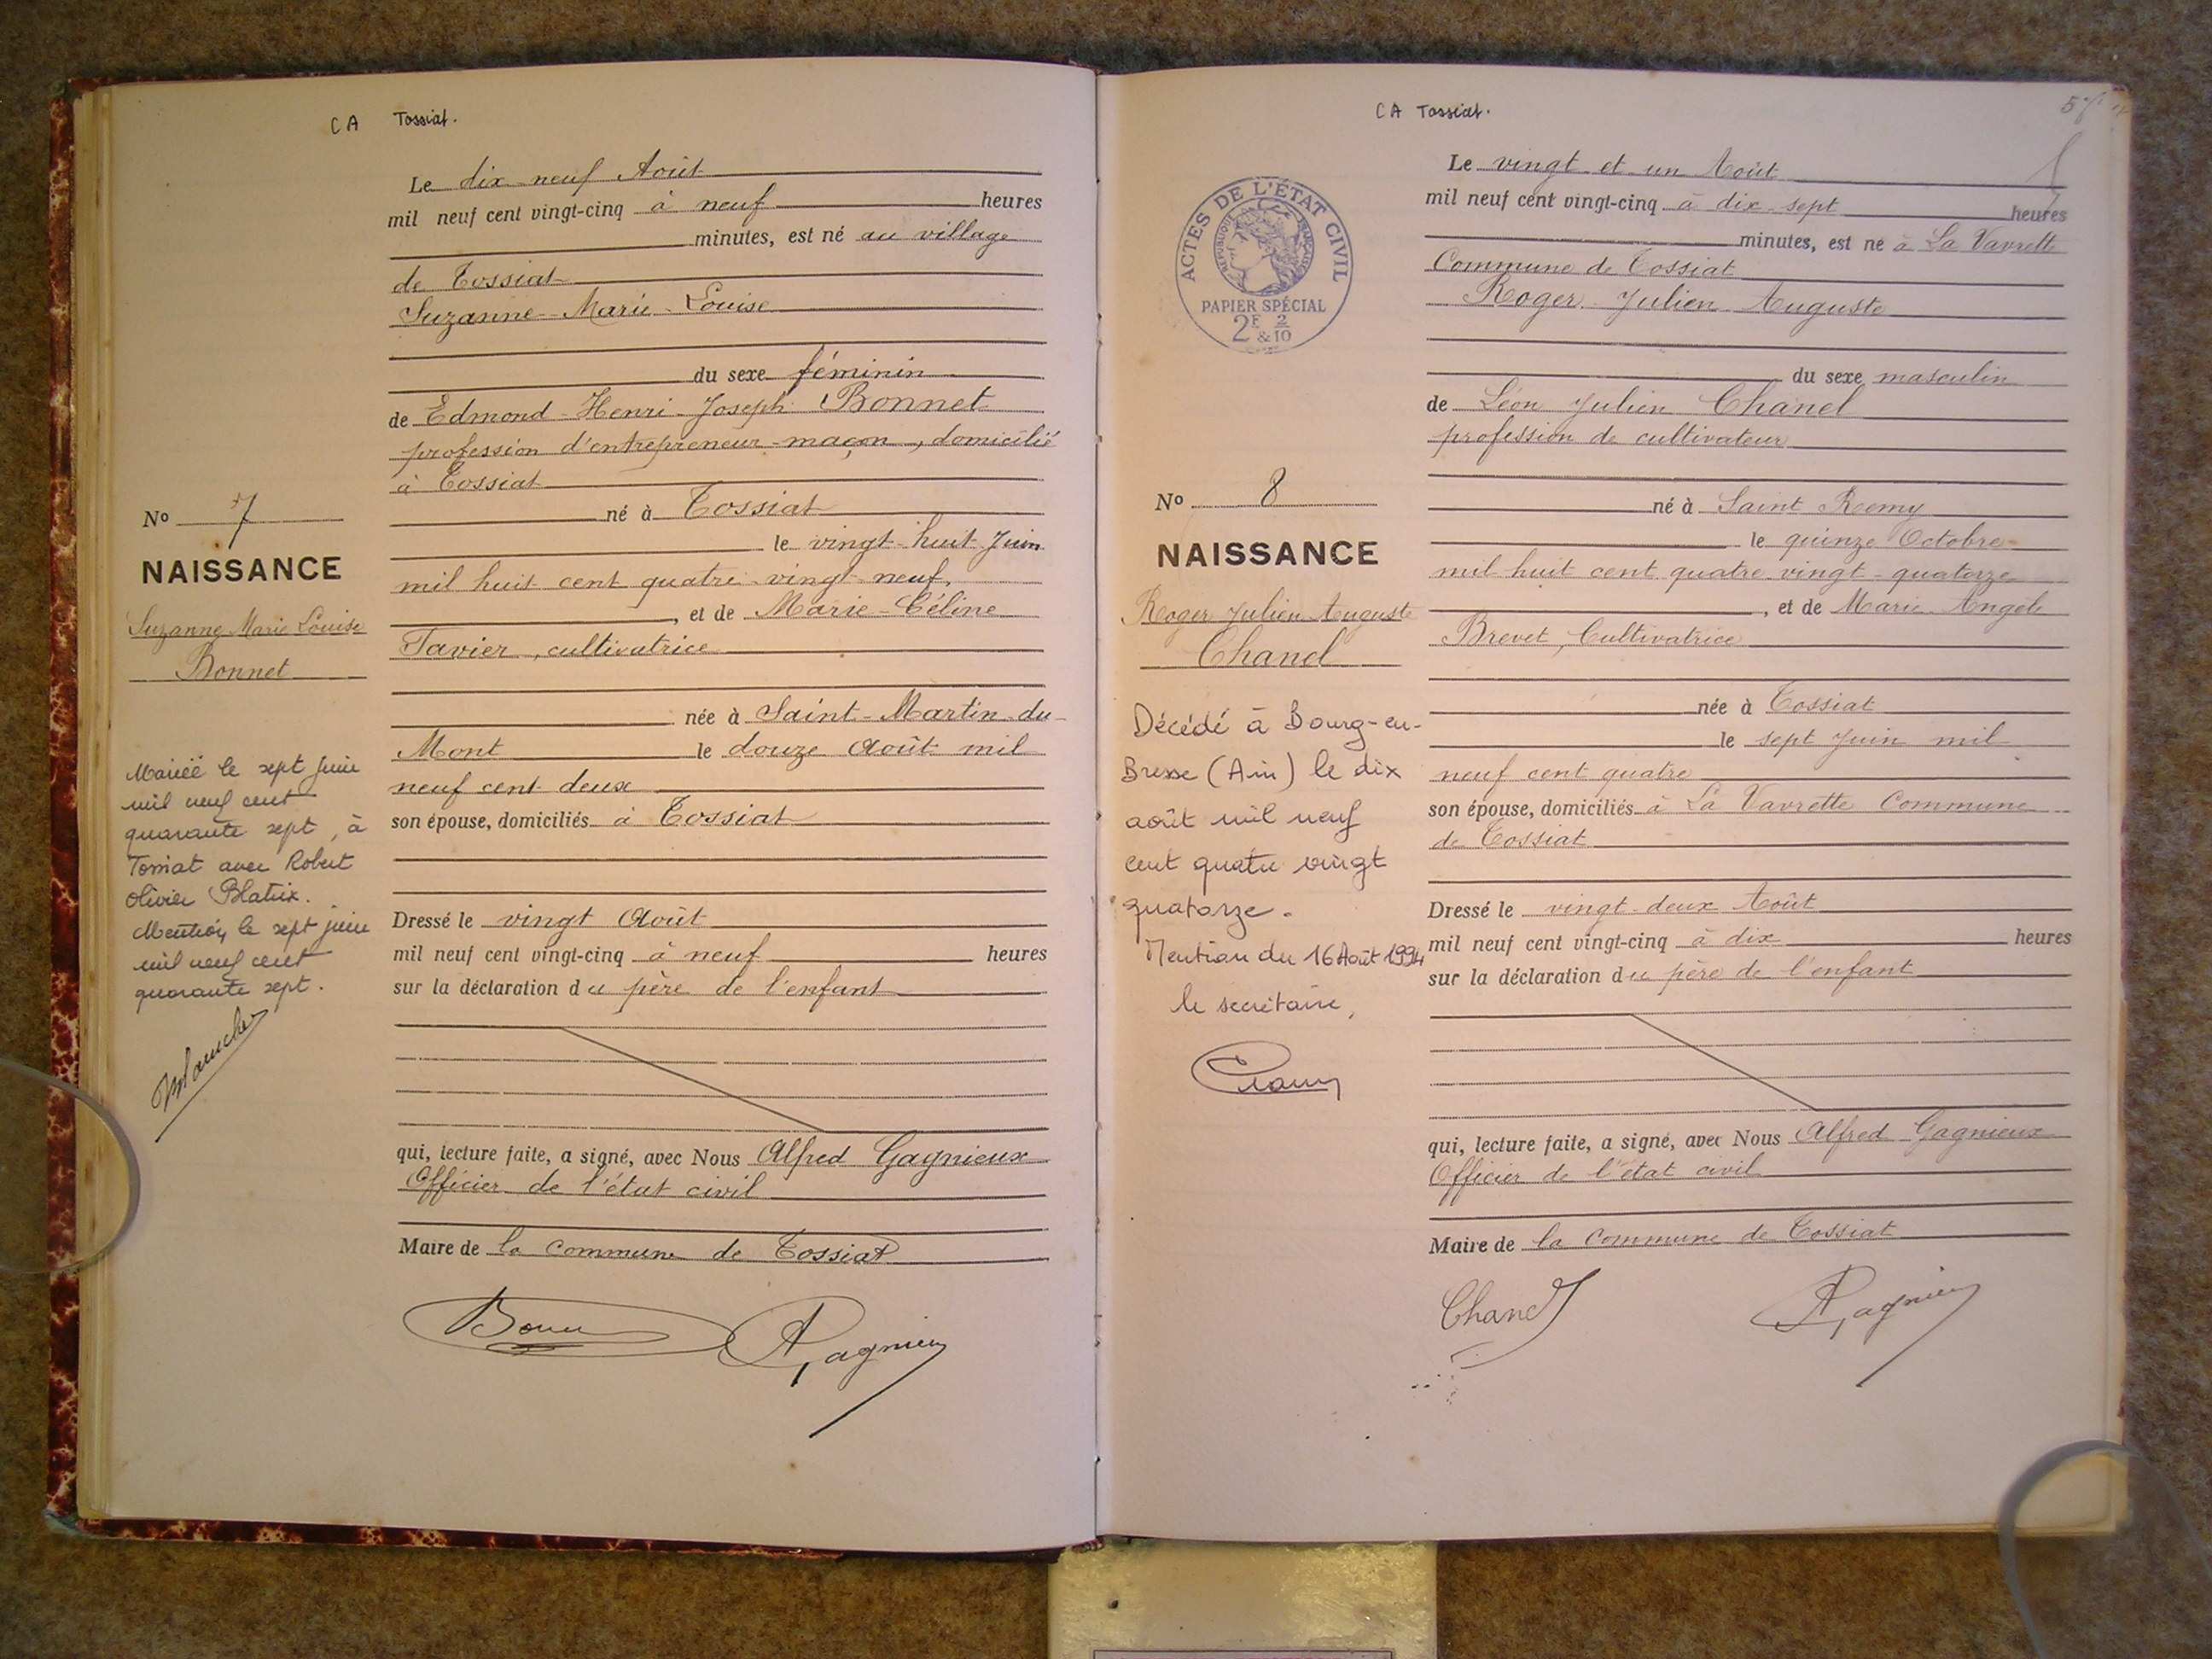 CA Tossiat.
Le dix neuf Août
mil neuf cent vingt-cinq à neuf heures
minutes, est né au village
de Tossiat
Suzanne Marie Louise
du sexe féminin
de Edmond Henri Joseph Bonnet
profession d'entrepreneur-maçon, domicilié
à Tossiat
né à Tossiat
le vingt huit Juin
mil huit cent quatre vingt neuf,
, et de Marie-Céline
Tavier, cultivatrice
née à Saint-Martin-du-
Mont le douze Août mil
neuf cent deux
son épouse, domiciliés à Tossiat
Dressé le vingt Août
mil neuf cent vingt-cinq à neuf heures
sur la déclaration du père de l'enfant
qui, lecture faite, a signé, avec Nous Alfred Gagnieux
Officier de l'état civil
Maire de la commune de Tossiat
No 7
NAISSANCE
Suzanne Marie Louise
Bonnet
Mariée le sept juin
mil neuf cent
quarante sept, à
Tossiat avec Robert
Olivier Blatrix.
Mention, le sept juin
mil neuf cent
quarante sept.
CA Tossiat.
57
ACTES DE L'ÉTAT CIVIL
RÉPUBLIQUE FRANÇAISE
PAPIER SPÉCIAL
2F & 2/10
Le vingt et un Août
mil neuf cent vingt-cinq à dix-sept heures
minutes, est né à La Vavrette
Commune de Tossiat
Roger Julien Auguste
du sexe masculin
de Léon Julien Chanel
profession de cultivateur
né à Saint Remy
le quinze Octobre
mil huit cent quatre vingt-quatorze
, et de Marie Angèle
Brevet, Cultivatrice
née à Tossiat
le sept Juin mil
neuf cent quatre
son épouse, domiciliés à La Vavrette Commune
de Tossiat
Dressé le vingt-deux Août
mil neuf cent vingt-cinq à dix heures
sur la déclaration du père de l'enfant
qui, lecture faite, a signé, avec Nous Alfred Gagnieux
Officier de l'état civil
Maire de la Commune de Tossiat
Chanel
No 8
NAISSANCE
Roger Julien Auguste
Chanel
Décédé à Bourg-en-
Bresse (Ain) le dix
août mil neuf
cent quatre vingt
quatorze.
Mention du 16 Août 1994
le secrétaire,